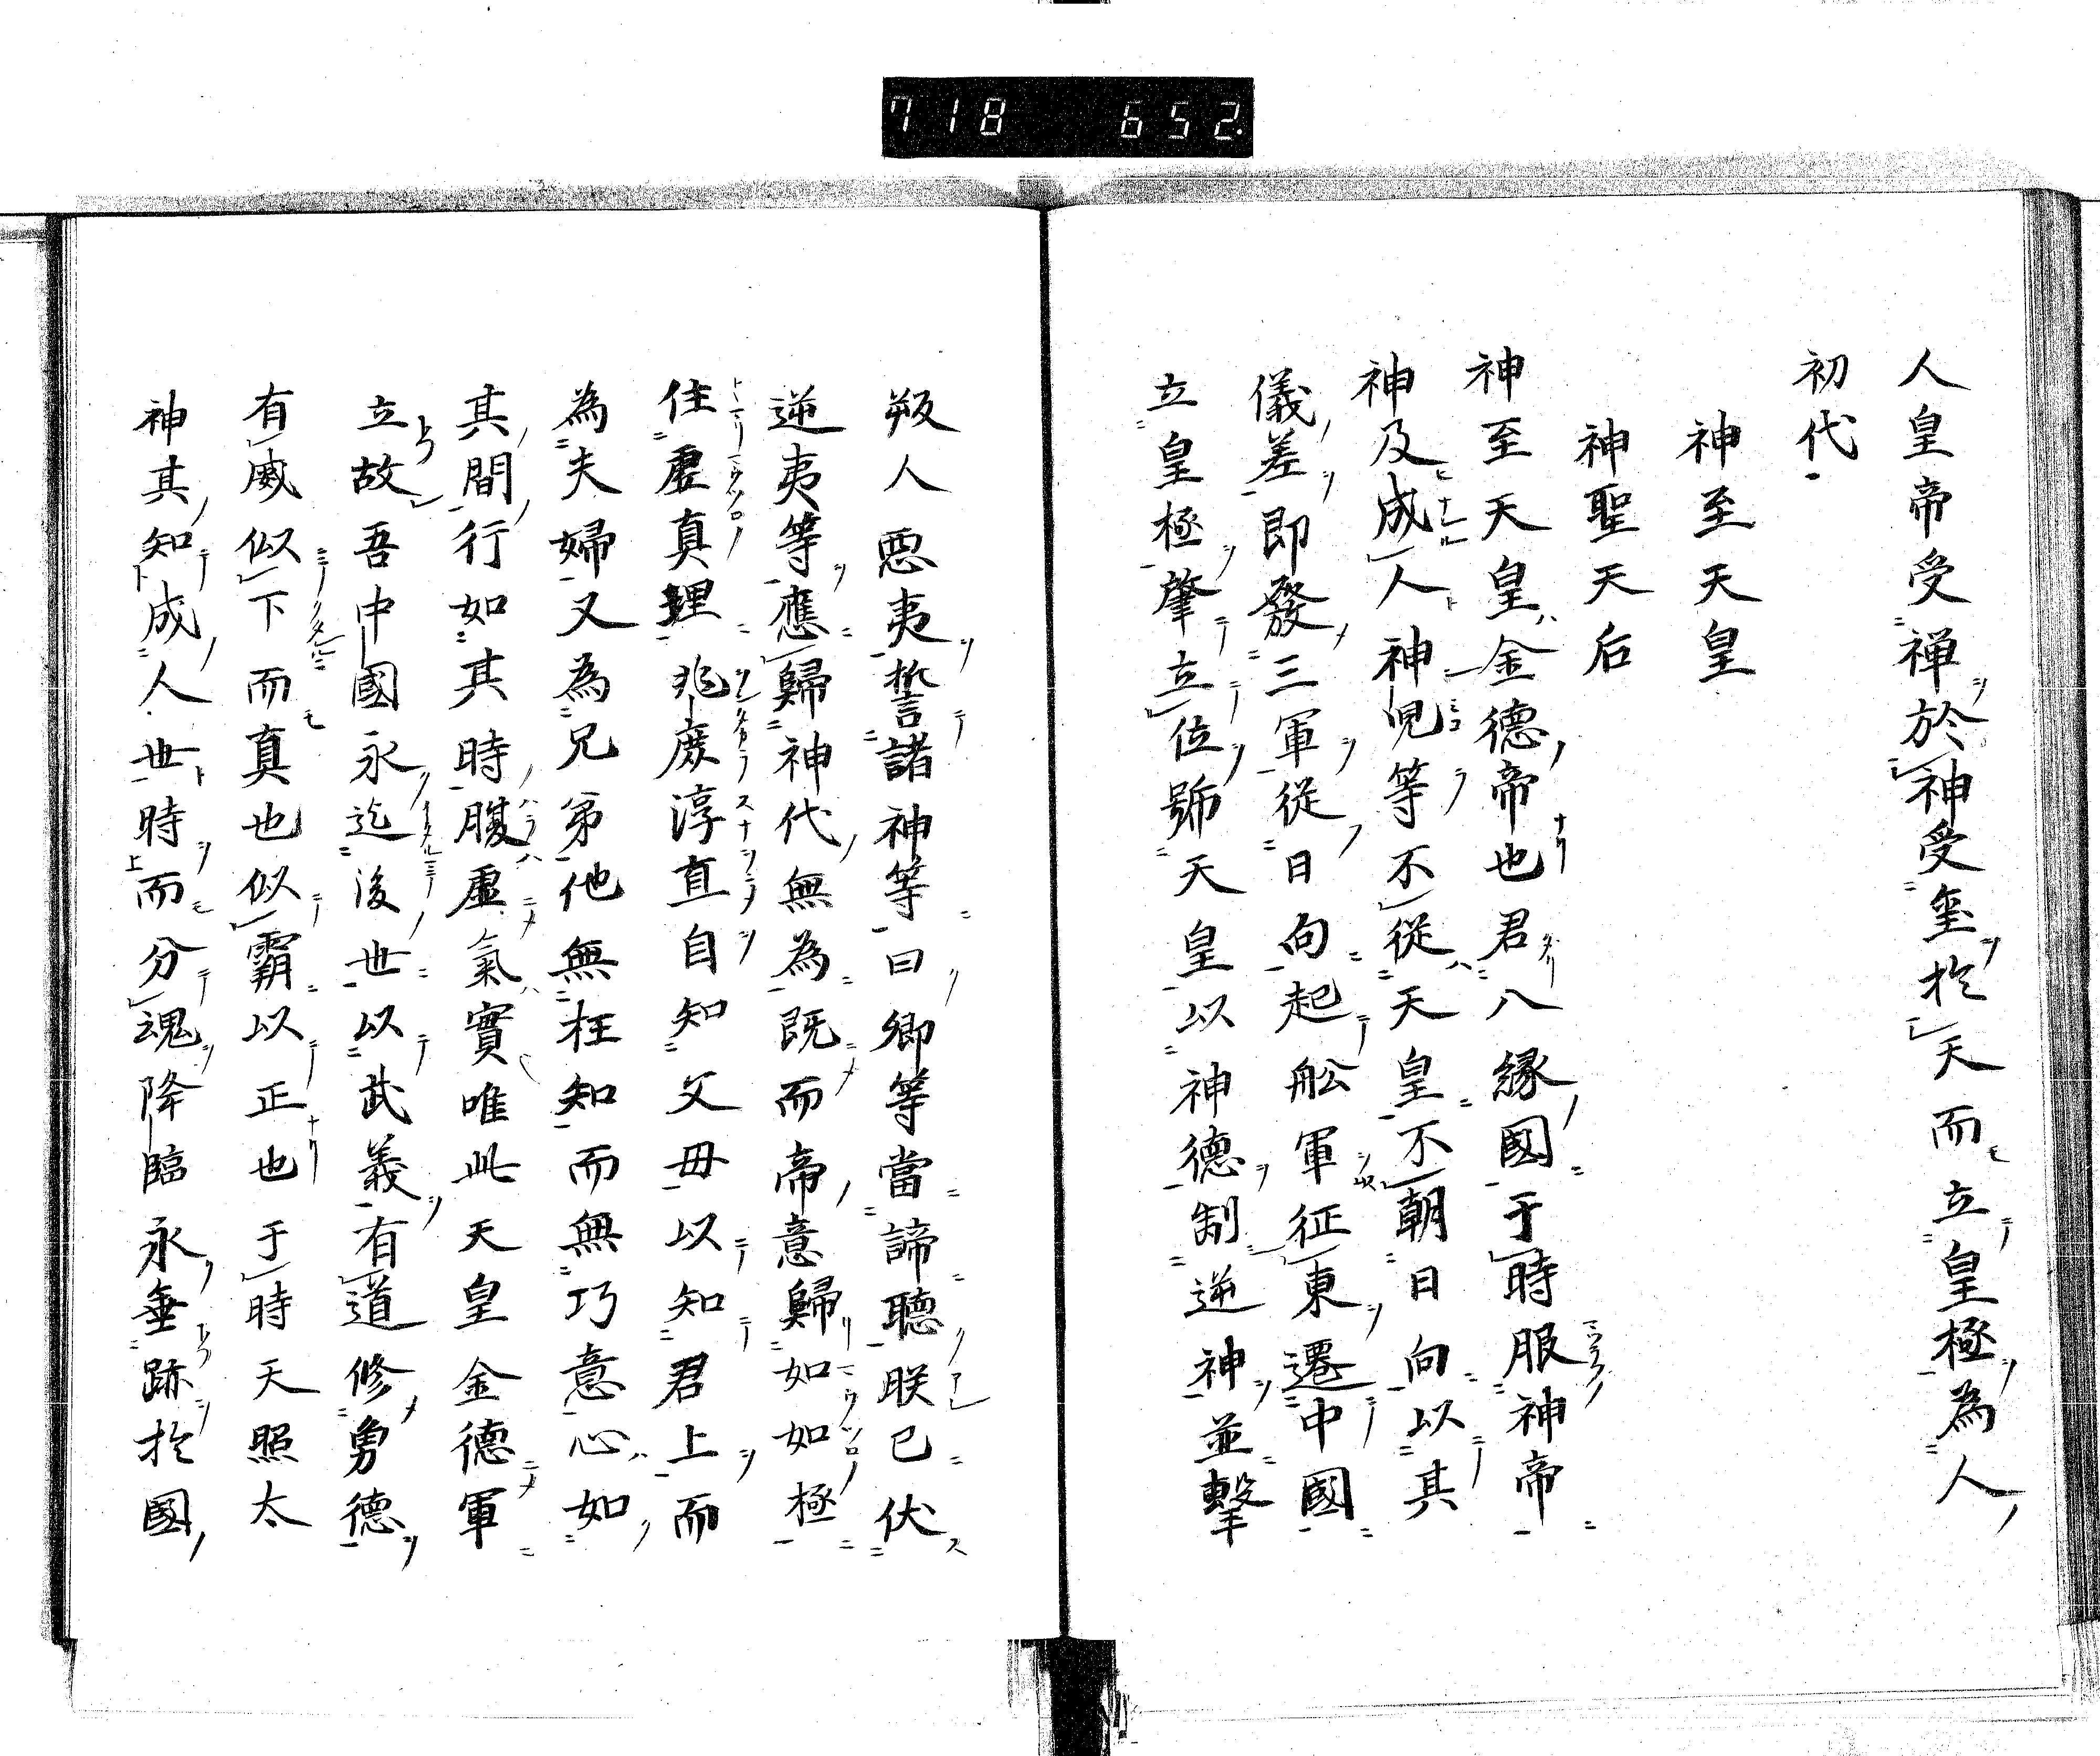 718 652.
人皇帝受禅於神受璽於天而立皇極為人
初代
神至天皇
神聖天后
神至天皇金德帝也君八緣國于時服神帝
神及成人神児等不從天皇不朝日向以其
儀差即發三軍從日向起舩軍征東遷中國
立皇極肇立位號天皇以神德制逆神並擊
叛人悪夷誓諸神等曰卿等當諦聽朕已伏
逆夷等應歸神代無為既而帝意歸如如極
住虚真理兆庶淳直自知父毋以知君上而
為夫婦又為兄弟他無枉知而無巧意心如
其間行如其時腹虚氣實唯此天皇金德軍
立故吾中國永迄後世以武義有道修勇德
有威似下而真也似霸以正也于時天照太
神其知成人世時而分魂降臨永垂跡於國